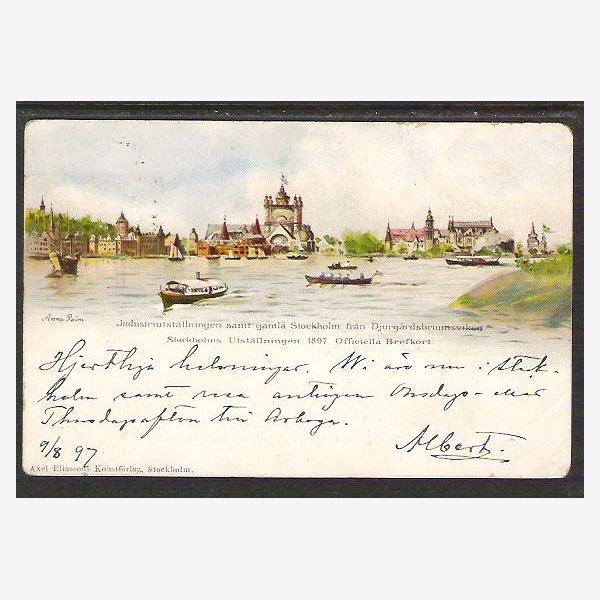 Anna Palm
Industriutställningen samt gamla Stockholm från Djurgårdsbrunnsviken
Stockholms Utställningen 1897. Officiella Brefkort
Hjertliga helsningar. Wi äro nu i Stock-
holm samt resa antingen Onsdags- eller
Thorsdagsafton till Arboga.
Albert.
9/8 97
Axel Eliassons Konstförlag, Stockholm.